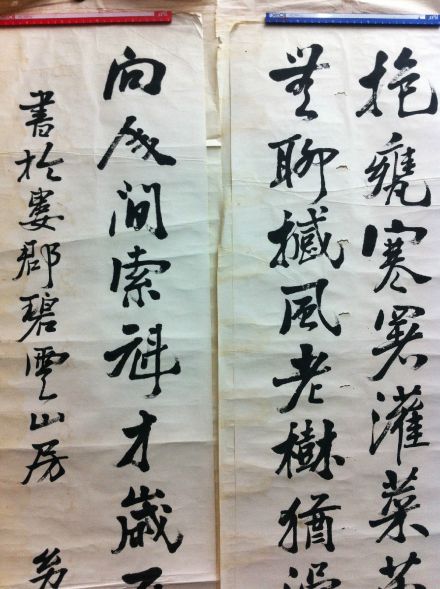 抱甕寒暑灌菜
無聊撼風老樹猶
向成間索科才歲
書於婁郡碧雲山房